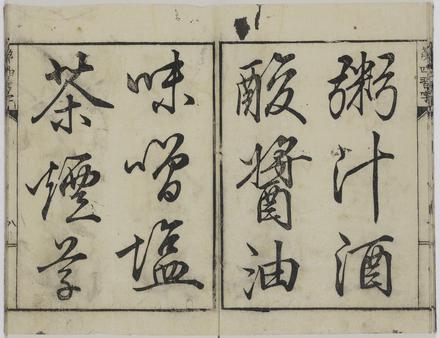 粥汁酒
酸醬油
味噌塩
茶煙草